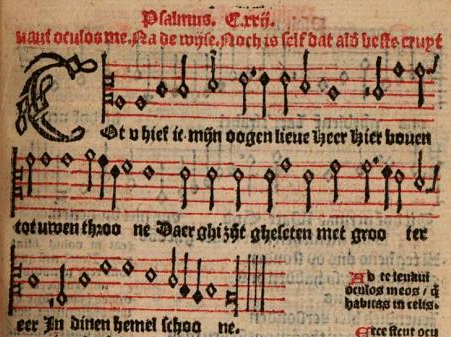 Psalmus. C.xxij.
uaui oculos me. Na de wijse. Noch is self dat ald beste cruyt
Tot v hief ic mijn oogen lieue Heer hier bouen
tot uwen throo ne Daer ghi zijt gheseten met groo ter
eer In dinen hemel schoo ne.
Ad te leuaui
oculos meos / q̃
habitas in celis.
Ecce sicut ocu